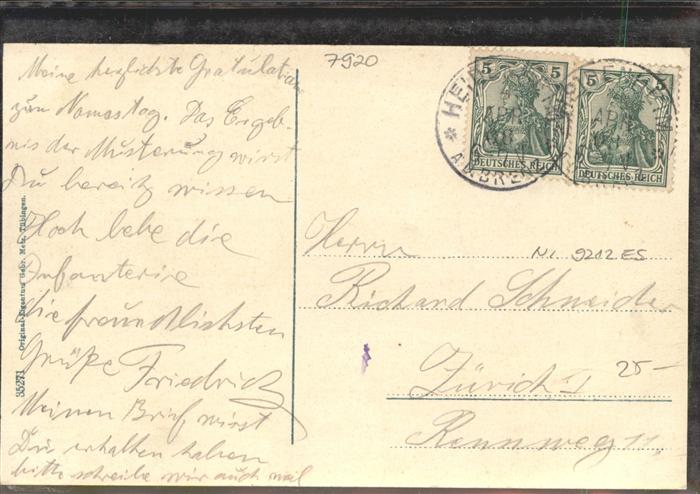 Meine herzlichste Gratulation
zum Namestag. Das Ergeb-
nis der Musterung wirst
Du bereits wissen
Hoch lebe die
Infanterie
die freundlichsten
Grüße Friedrich
Meinen Brief wirst
Du erhalten haben
bitte schreibe mir auch mal
35271 Original-Eigentum Gebr. Metz, Tübingen.
7920
5 5
DEUTSCHES REICH
5
DEUTSCHES REICH
Herrn
Nr. 9212 ES
Richard Schneider
25-
Zürich I
Rennweg 11.